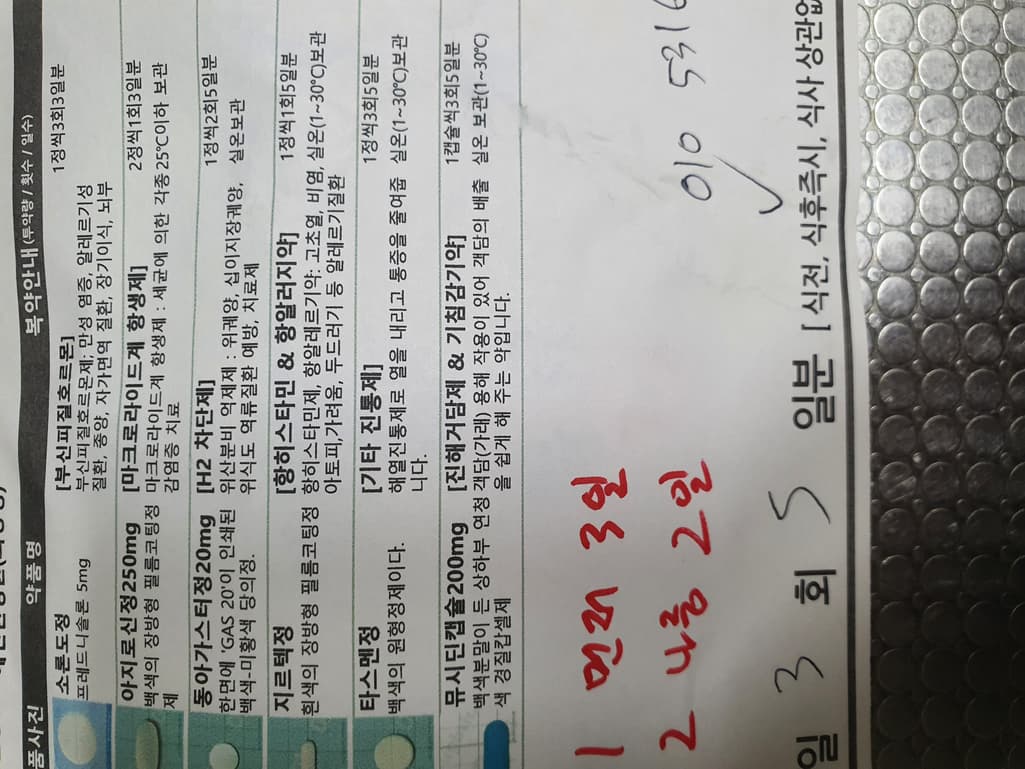 품사진 약품명 복약안내(투약량 / 횟수 / 일수)
소론도정 [부신피질호르몬] 1정씩3회3일분
프레드니솔론 5mg 부신피질호르몬제; 만성 염증, 알레르기성
질환, 종양, 자가면역 질환, 장기이식, 뇌부
아지로신정250mg [마크로라이드계 항생제] 2정씩1회3일분
백색의 장방형 필름코팅정 마크로라이드계 항생제 : 세균에 의한 각종 25℃이하 보관
제 감염증 치료
동아가스터정20mg [H2 차단제] 1정씩2회5일분
한면에 'GAS 20'이 인쇄된 위산분비 억제제 : 위궤양, 십이지장궤양, 실온보관
백색-미황색 당의정. 위식도 역류질환 예방, 치료제
지르텍정 [항히스타민 & 항알러지약] 1정씩1회5일분
흰색의 장방형 필름코팅정 항히스타민제, 항알레르기약: 고초열, 비염, 실온(1~30℃)보관
아토피,가려움, 두드러기 등 알레르기질환
타스멘정 [기타 진통제] 1정씩3회5일분
백색의 원형정제이다. 해열진통제로 열을 내리고 통증을 줄여줍 실온(1~30℃)보관
니다.
뮤시딘캡슐200mg [진해거담제 & 기침감기약] 1캡슐씩3회5일분
백색분말이 든 상하부 연청 객담(가래) 용해 작용이 있어 객담의 배출 실온 보관(1~30℃)
색 경질캅셀제 을 쉽게 해 주는 약입니다.
1 먼저 3일
2 나중 2일
010 531
일 3 회 5 일분 [ 식전, 식후즉시, 식사 상관없